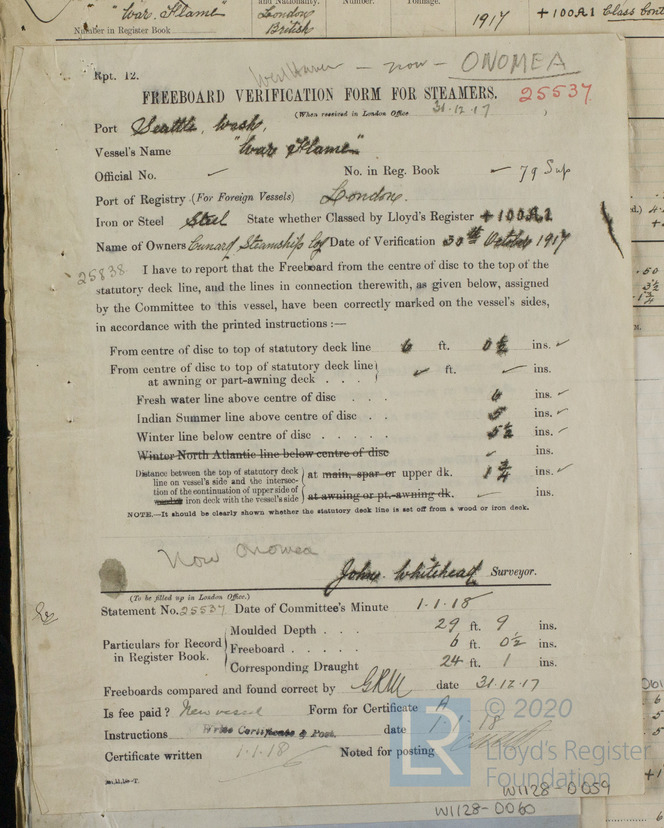 "War Flame" London 1917 +100A1 Class Cont
Number in Register Book British
Rpt. 12.
West Haven — now — ONOMEA
FREEBOARD VERIFICATION FORM FOR STEAMERS. 25537
(When received in London Office 31.12.17
Port Seattle, Wash,
Vessel's Name "War Flame"
Official No. ✓ No. in Reg. Book — 79 Sup
Port of Registry (For Foreign Vessels) London.
Iron or Steel Steel State whether Classed by Lloyd's Register +100A1
Name of Owners Cunard Steamship Coy Date of Verification 30th October 1917
25838
I have to report that the Freeboard from the centre of disc to the top of the
statutory deck line, and the lines in connection therewith, as given below, assigned
by the Committee to this vessel, have been correctly marked on the vessel's sides,
in accordance with the printed instructions :—
From centre of disc to top of statutory deck line 6 ft. 0½ ins. ✓
From centre of disc to top of statutory deck line
at awning or part-awning deck . . . ✓ ft. ✓ ins.
Fresh water line above centre of disc . . 6 ins. ✓
Indian Summer line above centre of disc . . 5 ins. ✓
Winter line below centre of disc . . . . . 5½ ins. ✓
Winter North Atlantic line below centre of disc ✓ ins.
Distance between the top of statutory deck
line on vessel's side and the intersec-
tion of the continuation of upper side of
iron deck with the vessel's side
at main, spar or upper dk. 1¾ ins. ✓
at awning or pt.-awning dk. ✓ ins.
NOTE.—It should be clearly shown whether the statutory deck line is set off from a wood or iron deck.
Now Onomea
John Whitehead Surveyor.
(To be filled up in London Office.)
Statement No. 25537 Date of Committee's Minute 1.1.18
Particulars for Record
in Register Book.
Moulded Depth . . . 29 ft. 9 ins.
Freeboard . . . . . 6 ft. 0½ ins.
Corresponding Draught 24 ft. 1 ins.
Freeboards compared and found correct by GRM date 31.12.17
Is fee paid? New vessel Form for Certificate A
Instructions Write Certificate & Post. date 1.1.18
Certificate written 1.1.18 Noted for posting
LR © 2020
Lloyd's Register
Foundation
W1128-0059
W1128-0060